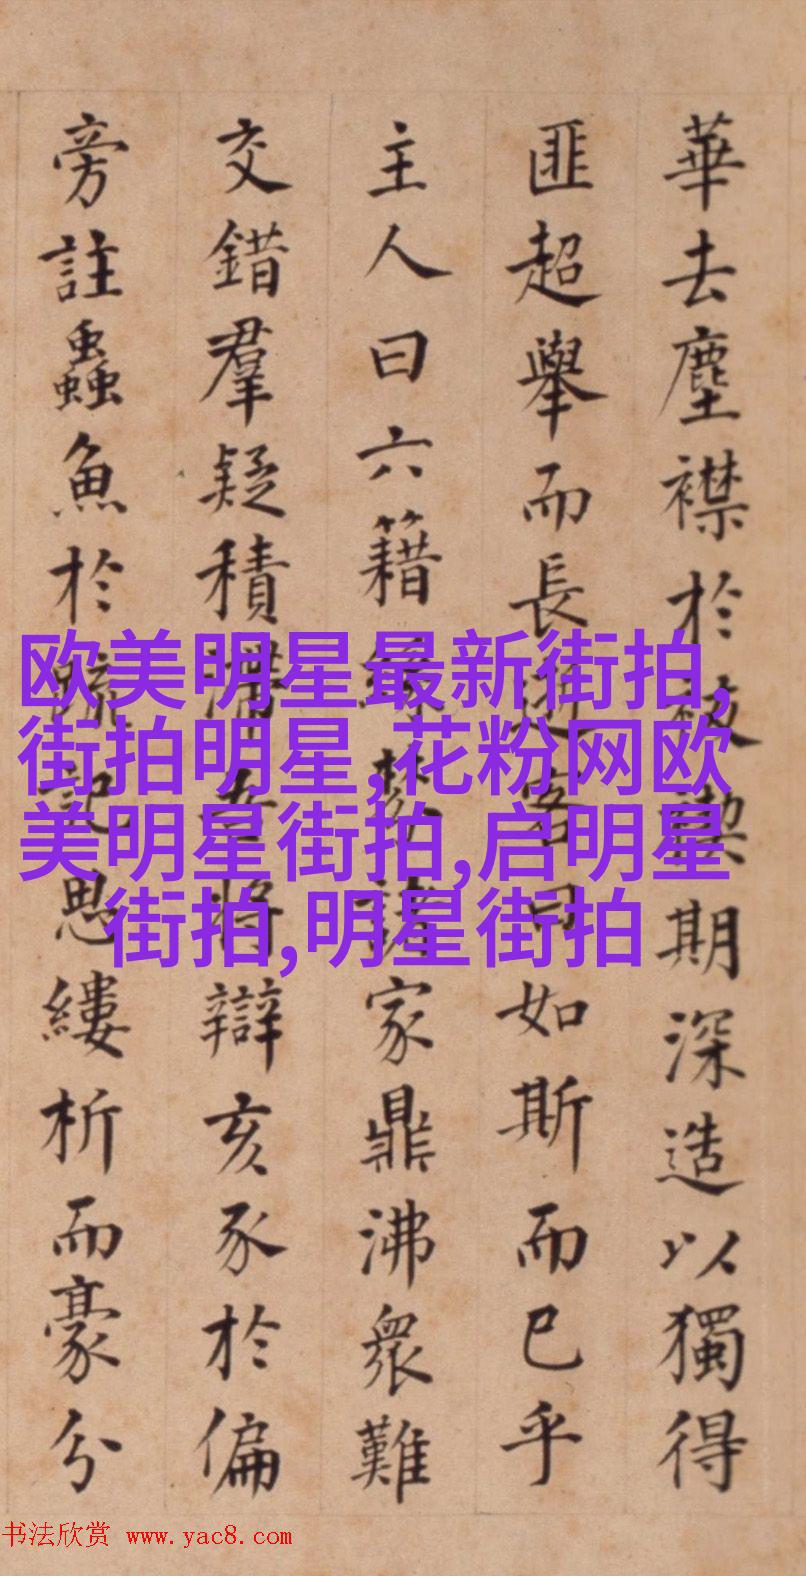 華去塵襟於期深造以獨得
匪超舉而長客曰如斯而已乎
主人曰六籍諸家鼎沸衆難
交錯羣疑積滯將辯亥豕於偏
旁註蟲魚於記思縷析而豪分
欧美明星最新街拍,
街拍明星,花粉网欧
美明星街拍,启明星
街拍,明星街拍
书法欣赏 www.yac8.com